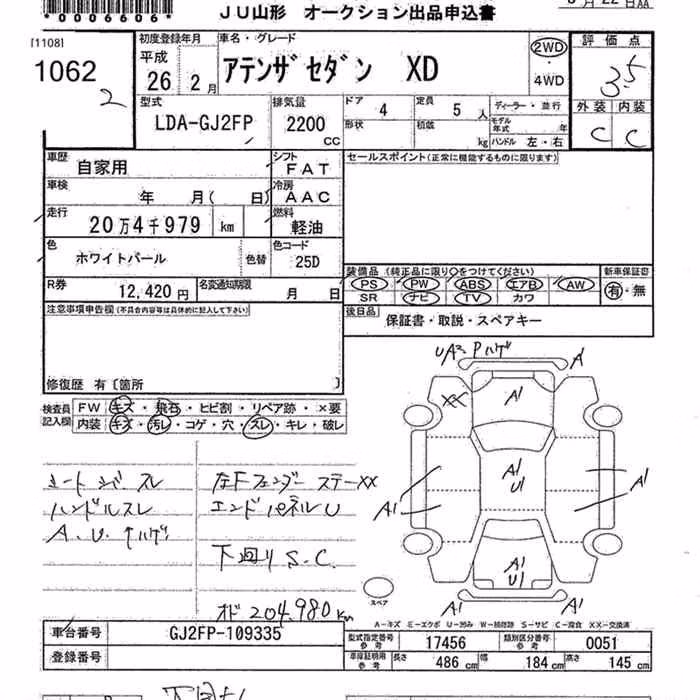 *0006606*
JU山形 オークション出品申込書
[1108]
1062
2
初度登録年月
平成
26年 2月
車名・グレード
アテンザ セダン XD
2WD
4WD
評価点
3.5
外装 内装
C C
型式
LDA-GJ2FP
排気量
2200
CC
ドア 4
定員 5 人
形状
積載 kg
ディーラー・並行
モデル年式 年
ハンドル 左・右
車歴
自家用
シフト
FAT
車検
年 月( 日)
冷房
AAC
走行
20万4千979 km
燃料
軽油
色
ホワイトパール
色替
色コード
25D
R券
12,420円
名変通知期限
月 日
セールスポイント(正常に機能するものに限ります)
装備品(純正品に限り○をつけてください)
PS PW ABS エアB AW
SR ナビ TV カワ
新車保証書
有・無
後日品
保証書・取説・スペアキー
注意事項申告欄(不具合内容等は具体的に記入して下さい)
修復歴 有〔箇所 〕
検査員記入欄
FW キズ・飛石・ヒビ割・リペア跡・×要
内装 キズ・汚レ・コゲ・穴・スレ・キレ・破レ
シートシバースレ
ハンドルスレ
A.U.↑ハゲ
左Fフェンダーステー XX
エンドパネルU
下廻りS.C.
オド 204,980km
UA2 Pハゲ
A1
XX
A1
A1
U1
A1
A1
A1
U1
A1
A1
スペア
A-キズ E-エクボ U-凹み W-補修跡 S-サビ C-腐食 XX-交換済
車台番号
GJ2FP-109335
登録番号
型式指定番号
参考
17456
類別区分番号
参考
0051
車庫証明用
参考
長さ 486 cm
幅 184 cm
高さ 145 cm